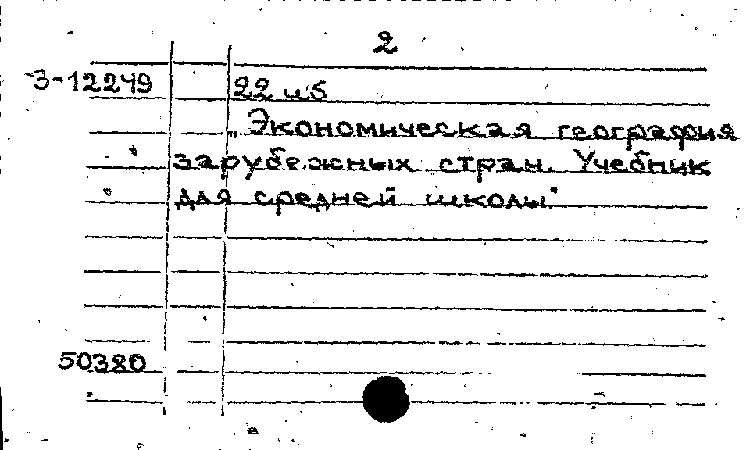 2
З-12249
22 и б
„Экономическая география
зарубежных стран. Учебник
для средней школы"
50380